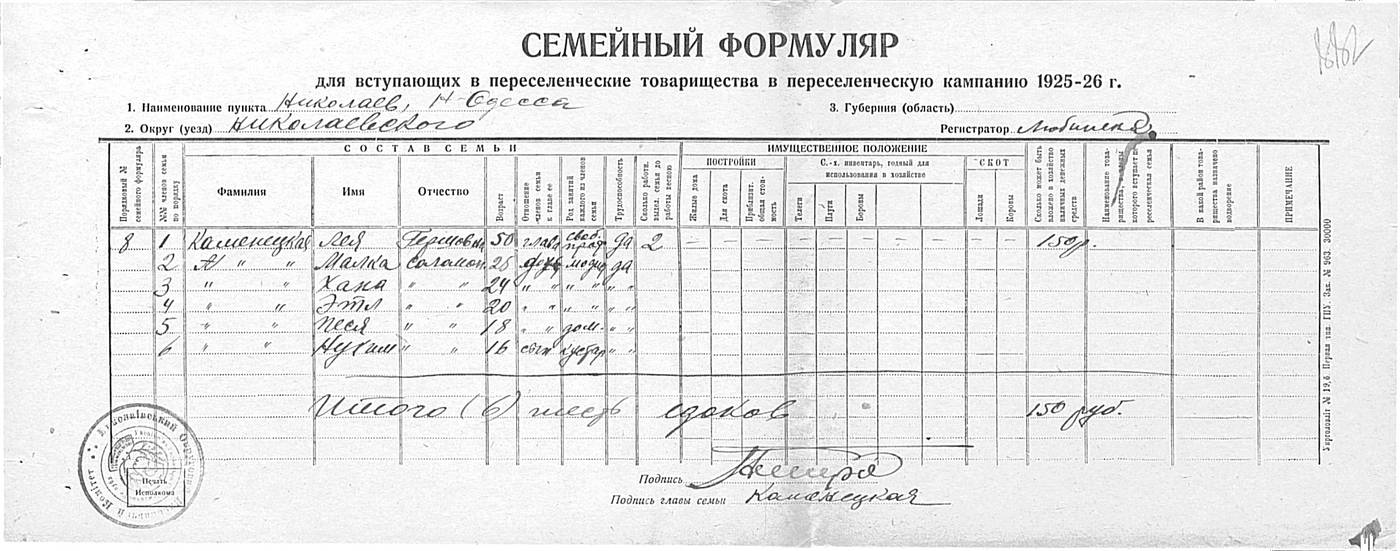 1882
СЕМЕЙНЫЙ ФОРМУЛЯР
для вступающих в переселенческие товарищества в переселенческую кампанию 1925-26 г.
1. Наименование пункта Николаев, Н-Одесса 3. Губерния (область)
2. Округ (уезд) Николаевского Регистратор
СОСТАВ СЕМЬИ ИМУЩЕСТВЕННОЕ ПОЛОЖЕНИЕ
Порядковый № семейного формуляра
№№ членов семьи по порядку
Фамилия Имя Отчество
Возраст
Отношение членов семьи к главе ее
Род занятий каждого из членов семьи
Трудоспособность
Сколько работн. выдел. семья до работы весною
ПОСТРОЙКИ
Жилые дома
Для скота
Приблизит. общая стоимость
С.-х. инвентарь, годный для использования в хозяйстве
Телеги
Плуги
Бороны
СКОТ
Лошади
Коровы
Сколько может быть вложено в хозяйство наличных денежных средств
Наименование товарищества, которого вступает переселенческая семья
В какой район товарищества назначено водворение
ПРИМЕЧАНИЕ
8 1 Каменецкая Лея 50 глава своб. проф да 2 – – – – – – – – – – – – 150р.
2 " " Малка Соломон. 26 дочь да
3 " " Хана " " 24 " " " " " "
4 " " Этл " " 20 " " " " " "
5 " " Песя " " 18 " " дом. " "
6 " " " " 16 сын кустар " "
Итого (6) шесть едоков 150 руб.
Подпись
Подпись главы семьи Каменецкая
Печать
Исполкома
Укрголовліт № 19,6. Перша тип. ГПУ. Зак. № 963 30000